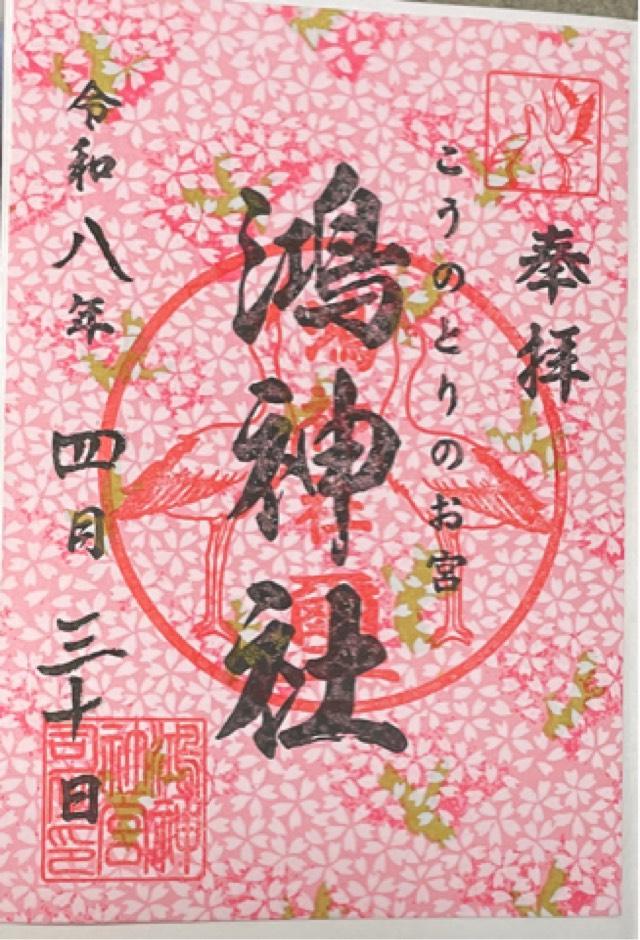 奉拝
こうのとりのお宮
鴻神社
令和八年 四月 三十日